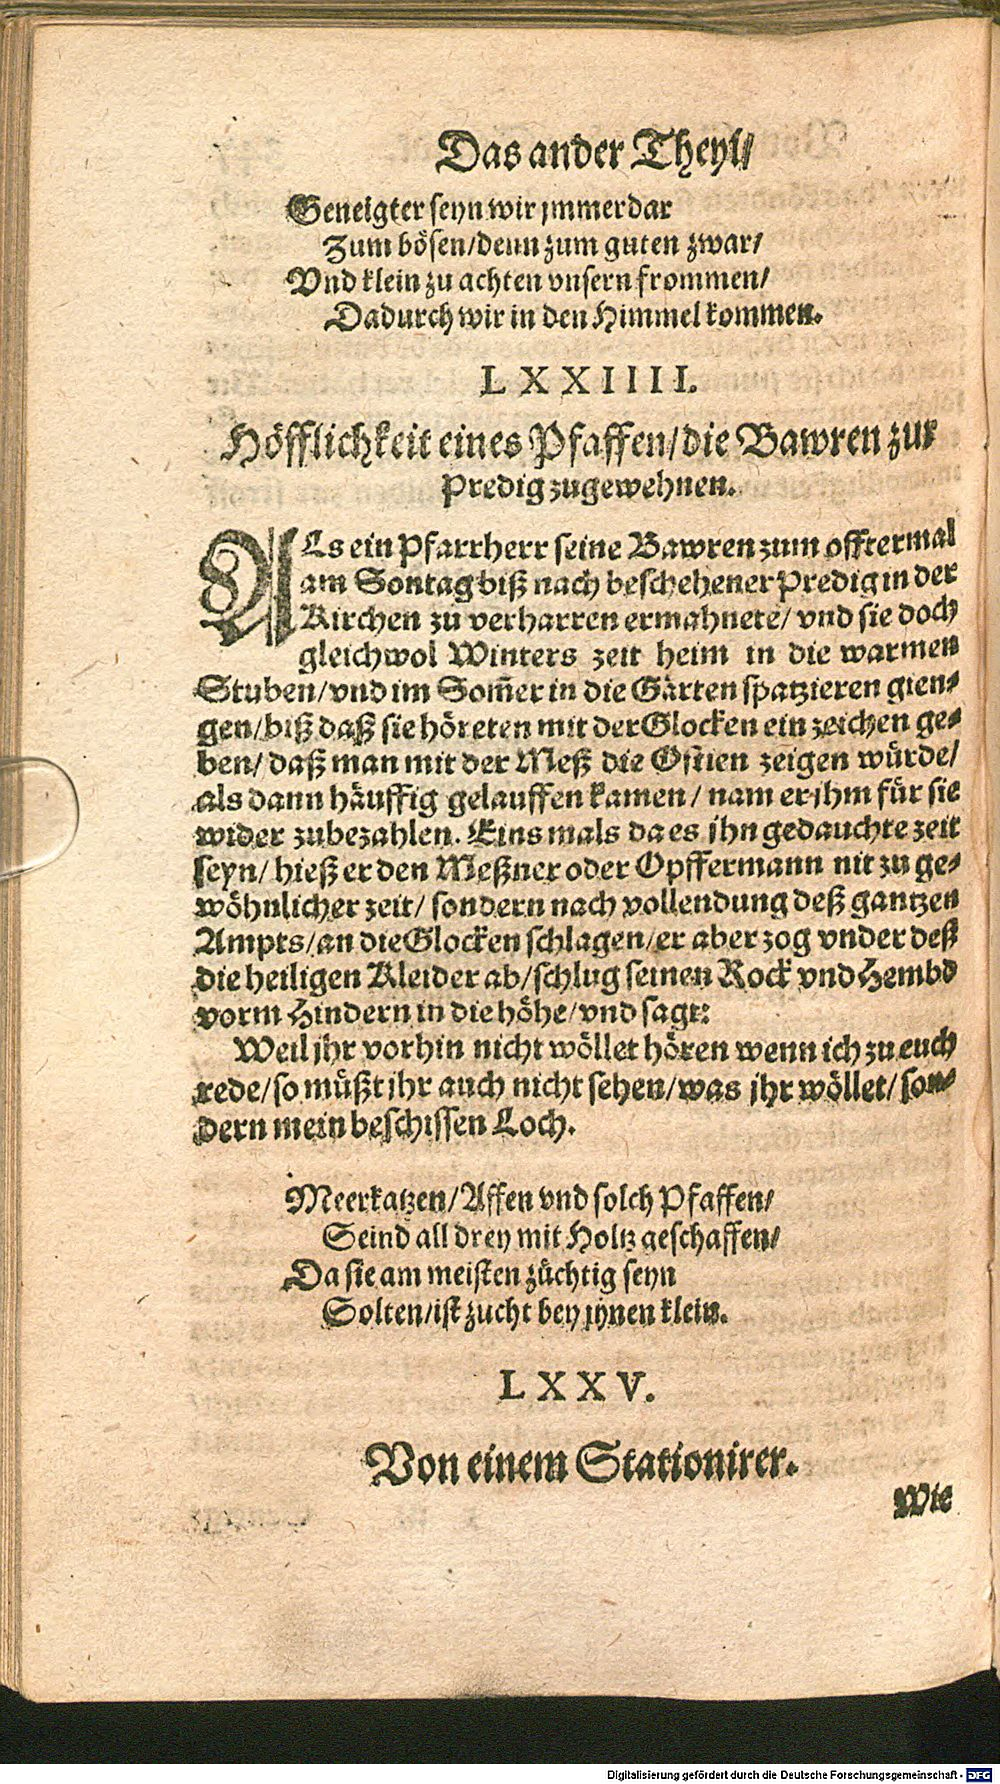 Das ander Theyl/
Geneigter seyn wir jmmerdar
Zum bösen/denn zum guten zwar/
Vnd klein zu achten vnsern frommen/
Dadurch wir in den Himmel kommen.
LXXIIII.
Höfflichkeit eines Pfaffen/die Bawren zur
Predig zugewehnen.
ALs ein Pfarrherr seine Bawren zum offtermal
am Sontag biß nach beschehener Predig in der
Kirchen zu verharren ermahnete/ vnd sie doch
gleichwol Winters zeit heim in die warmen
Stuben/vnd im Som̃er in die Gärten spatzieren gien-
gen/biß daß sie höreten mit der Glocken ein zeichen ge-
ben/ daß man mit der Meß die Ostien zeigen würde/
als dann häuffig gelauffen kamen/ nam er jhm für sie
wider zubezahlen. Eins mals da es jhn gedauchte zeit
seyn/ hieß er den Meßner oder Opffermann nit zu ge-
wöhnlicher zeit/ sondern nach vollendung deß gantzen
Ampts/an die Glocken schlagen/er aber zog vnder deß
die heiligen Kleider ab/schlug seinen Rock vnd Hembd
vorm Hindern in die höhe/vnd sagt:
Weil jhr vorhin nicht wöllet hören wenn ich zu euch
rede/so müßt jhr auch nicht sehen/was jhr wöllet/ son-
dern mein beschissen Loch.
Meerkatzen/Affen vnd solch Pfaffen/
Seind all drey mit Holtz geschaffen/
Da sie am meisten züchtig seyn
Solten/ist zucht bey jynen klein.
LXXV.
Von einem Stationirer.
Wie
Digitalisierung gefördert durch die Deutsche Forschungsgemeinschaft - DFG